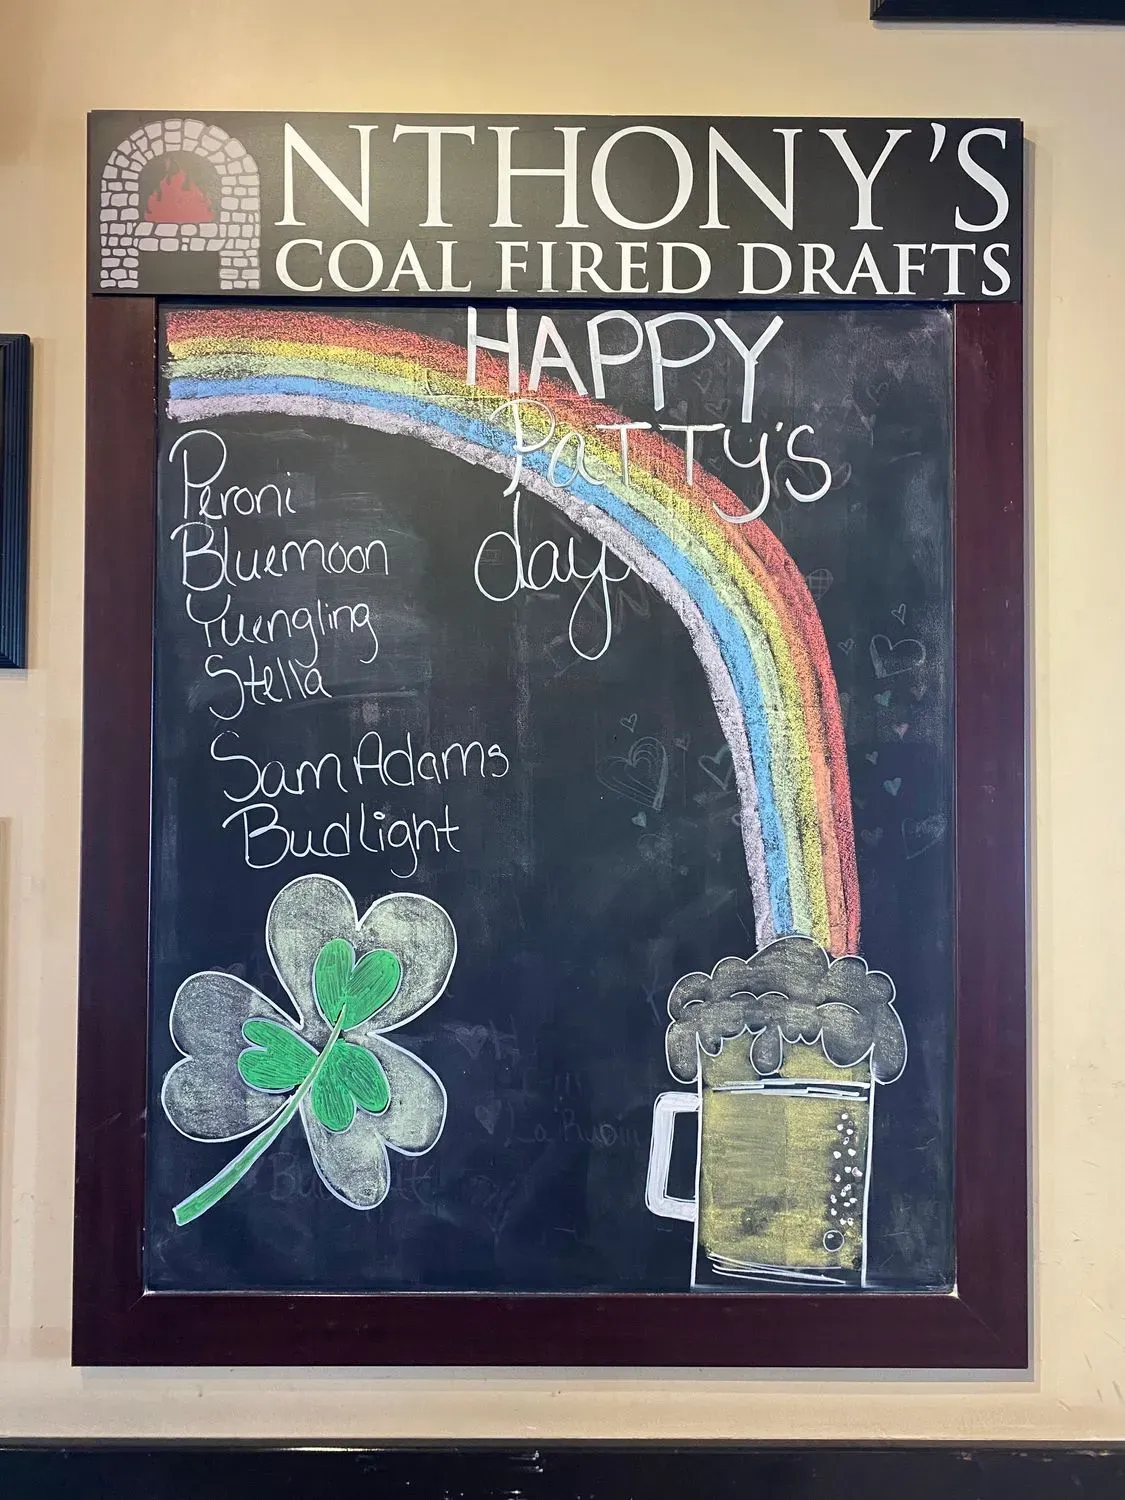 ANTHONY'S
COAL FIRED DRAFTS
HAPPY
PaTTy's
day
Peroni
Bluemoon
Yuengling
Stella
Sam Adams
Budlight